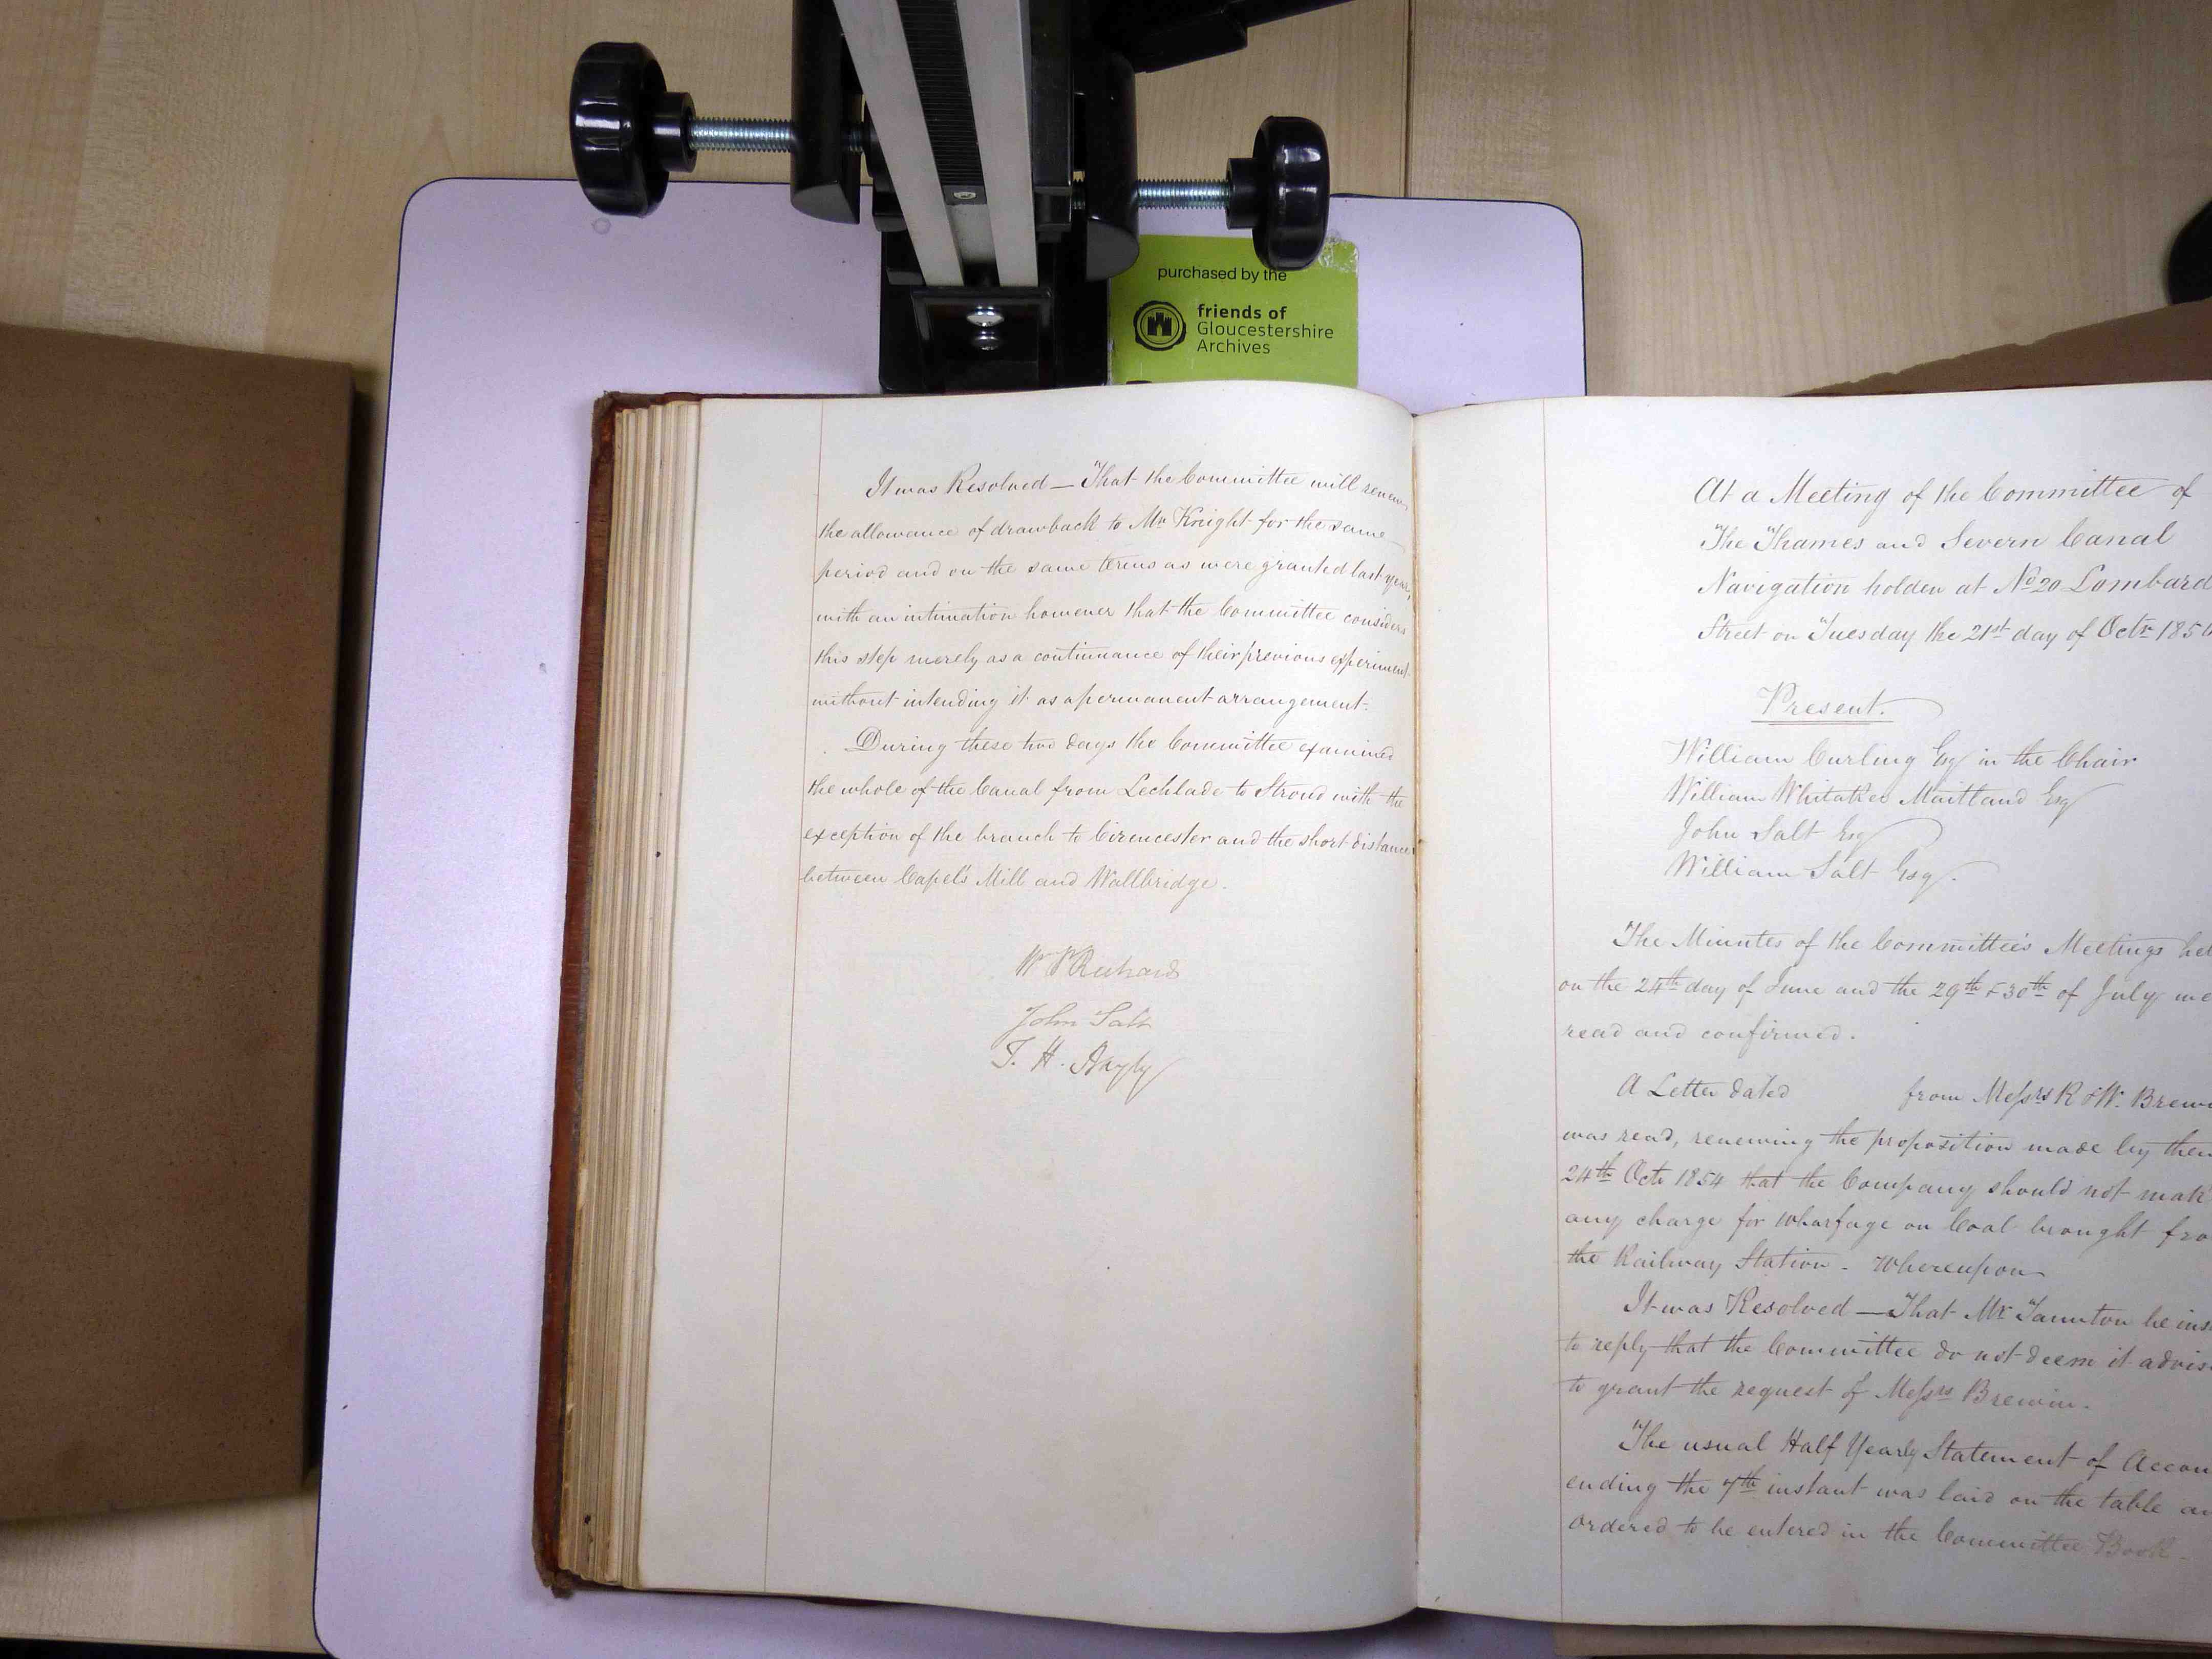 purchased by the
friends of
Gloucestershire
Archives
It was Resolved — That the Committee will renew
the allowance of drawback to Mr Knight for the same
period and on the same terms as were granted last year,
with an intimation however that the Committee considers
this step merely as a continuance of their previous experiment
without intending it as a permanent arrangement.
During these two days the Committee examined
the whole of the Canal from Lechlade to Stroud with the
exception of the branch to Cirencester and the short distance
between Capel's Mill and Wallbridge.
John Salt
At a Meeting of the Committee of
The Thames and Severn Canal
Navigation holden at No 20 Lombard
Street on Tuesday the 21st day of Octr 185
Present.
William Curling Esq in the Chair
William Whitaker Maitland Esq
John Salt Esq
William Salt Esq.
The Minutes of the Committee's Meetings hel
on the 24th day of June and the 29th & 30th of July we
read and confirmed.
A Letter dated from Messrs R & W. Brew
was read, renewing the proposition made by them
24th Octr 1854 that the Company should not mak
any charge for Wharfage on Coal brought fro
the Railway Station - Whereupon
It was Resolved — That Mr Taunton be ins
to reply that the Committee do not deem it advis
to grant the request of Messrs Brewin.
The usual Half Yearly Statement of Accou
ending the 7th instant was laid on the table an
ordered to be entered in the Committee Book.